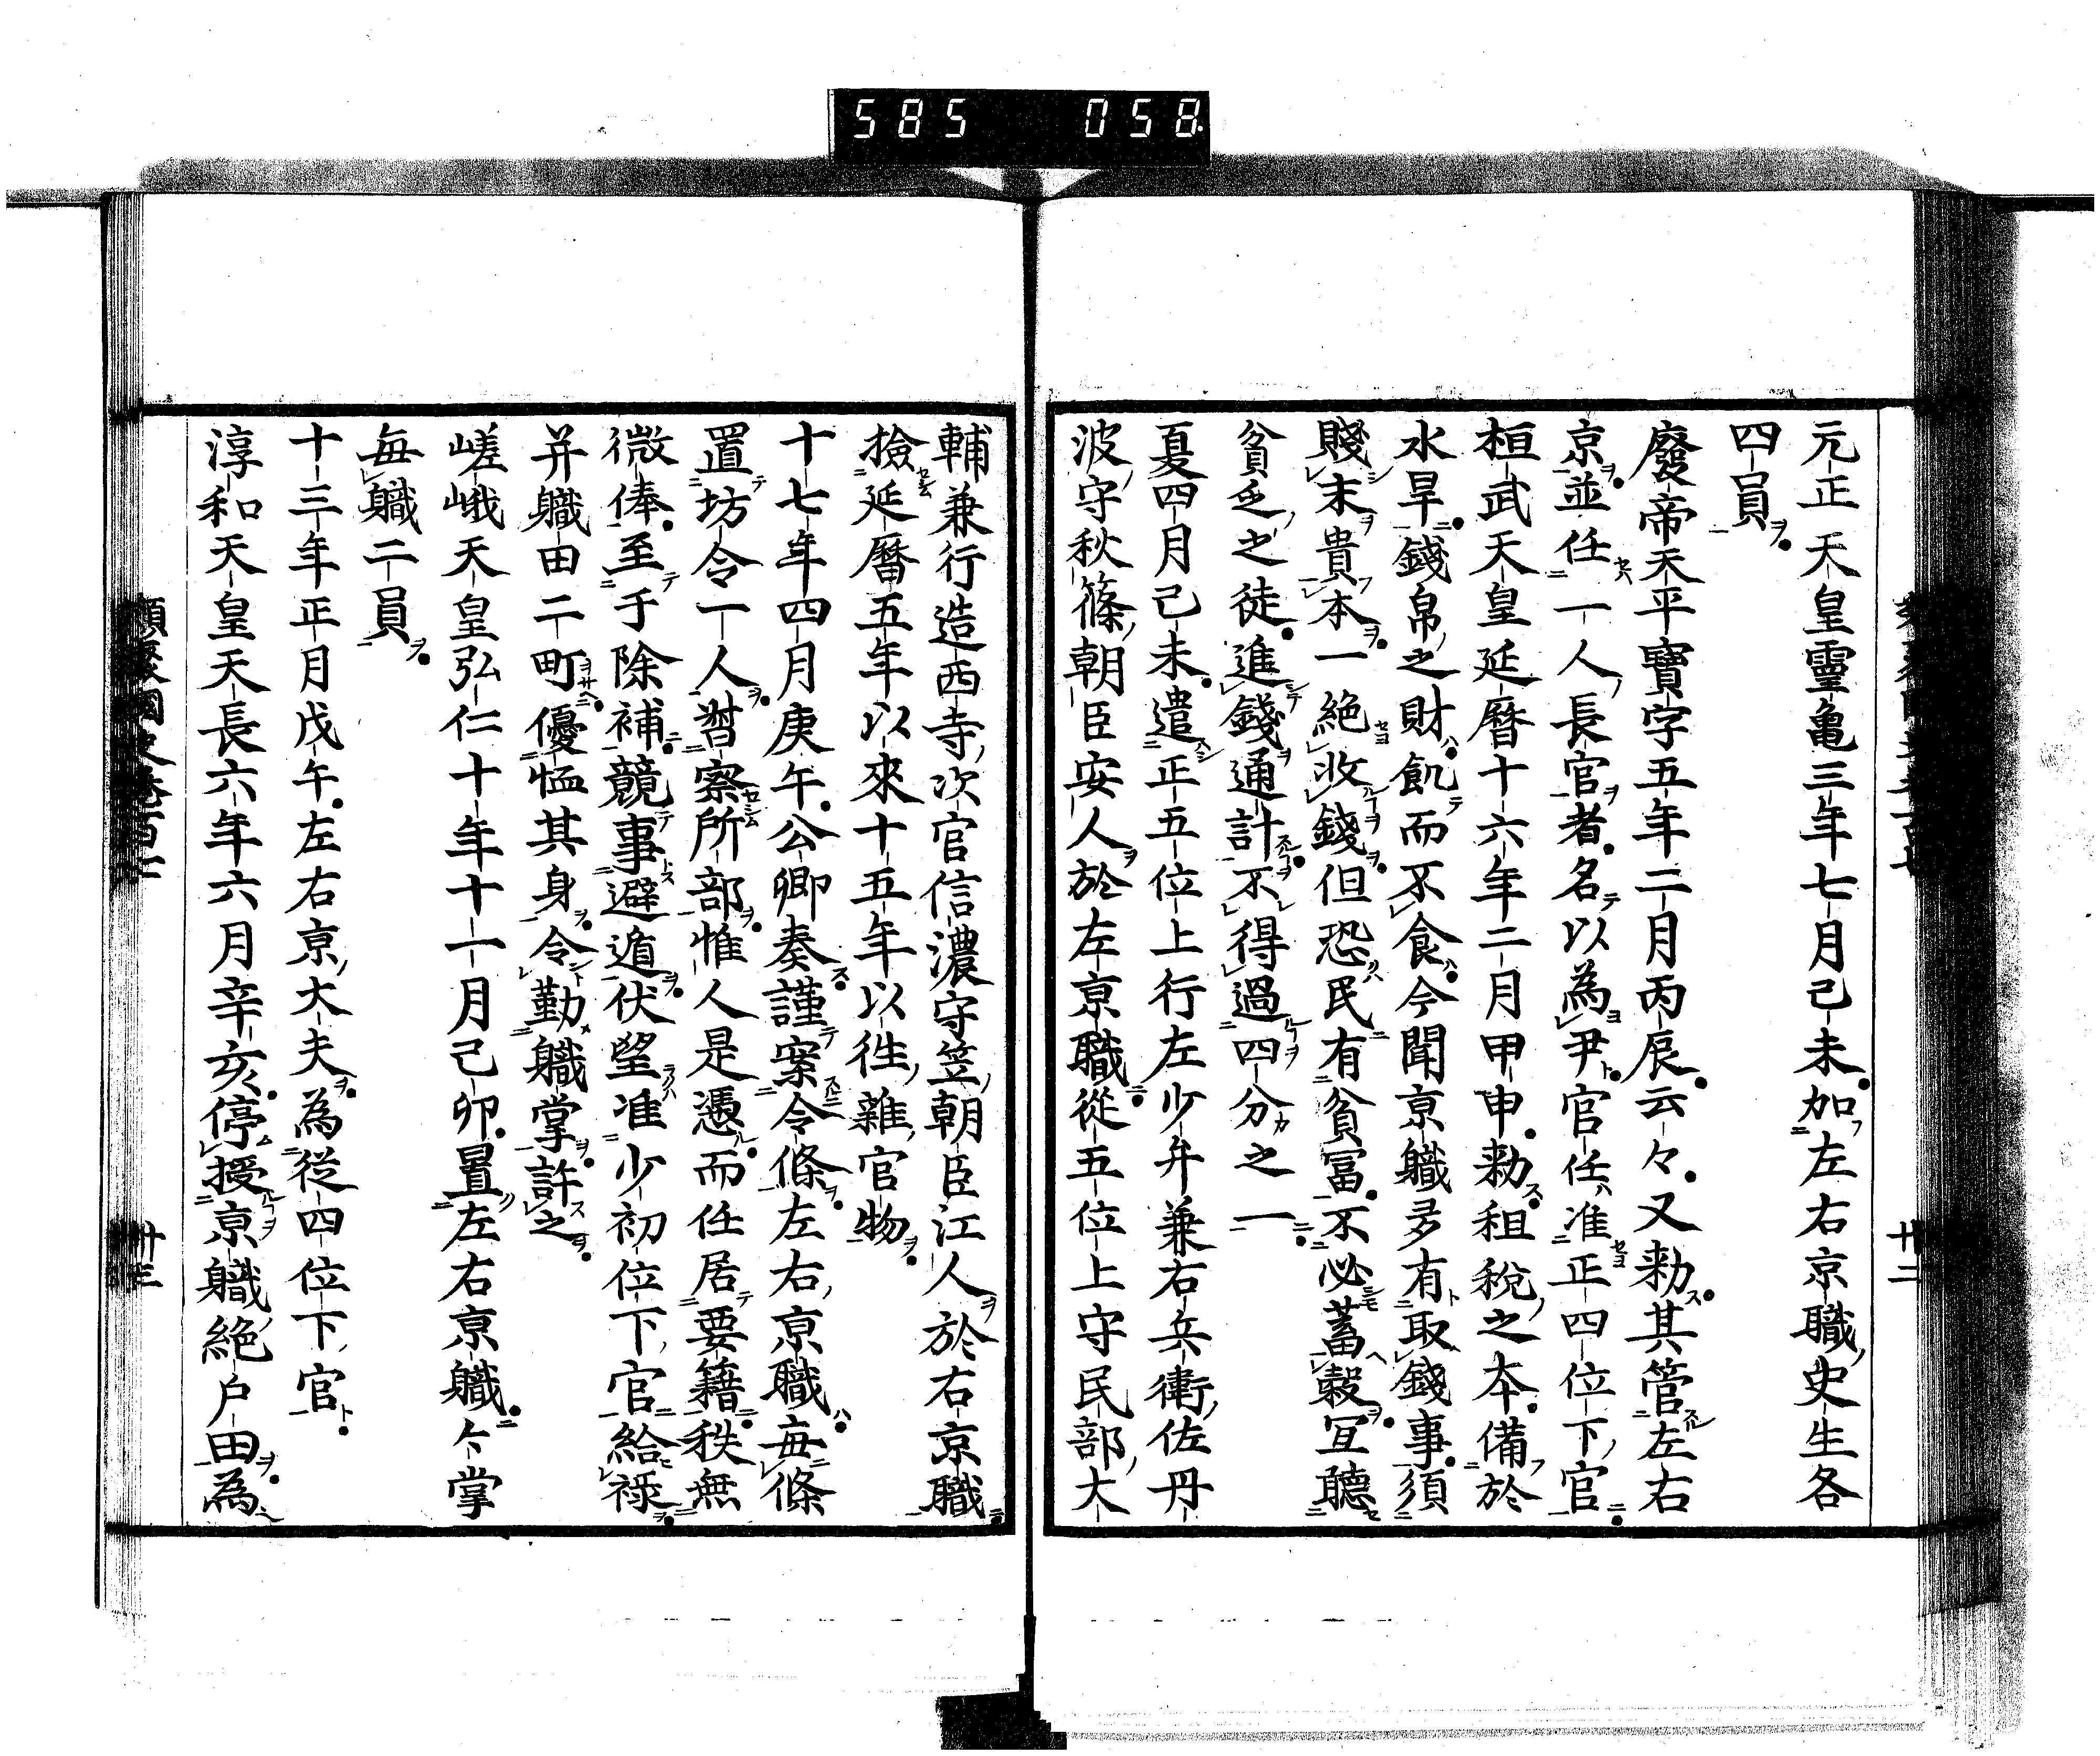 585 058
元正天皇靈亀三年七月己未加左右京職史生各
四員
廢帝天平寶字五年二月丙辰云々又勅其管左右
京並任一人長官者名以為尹官任准正四位下官
桓武天皇延曆十六年二月甲申勅租稅之本備於
水旱錢帛之財飢而不食今聞京職多有取錢事須
賤末貴本一絶收錢但恐民有貧冨不必蓄穀冝聽
貧乏之徒進錢通計不得過四分之一
夏四月己未遣正五位上行左少弁兼右兵衛佐丹
波守秋篠朝臣安人於左京職從五位上守民部大
輔兼行造西寺次官信濃守笠朝臣江人於右京職
撿延曆五年以來十五年以徃雜官物
十七年四月庚午公卿奏謹案令條左右京職毎條
置坊令一人督察所部惟人是憑而任居要籍秩無
微俸至于除補競事避遁伏望准少初位下官給祿
并職田二町優恤其身令勤職掌許之
嵯峨天皇弘仁十年十一月己卯置左右京職今掌
毎職二員
十三年正月戊午左右京大夫為從四位下官
淳和天皇天長六年六月辛亥停授京職絶户田為
類聚國史卷百七
廿二
廿三